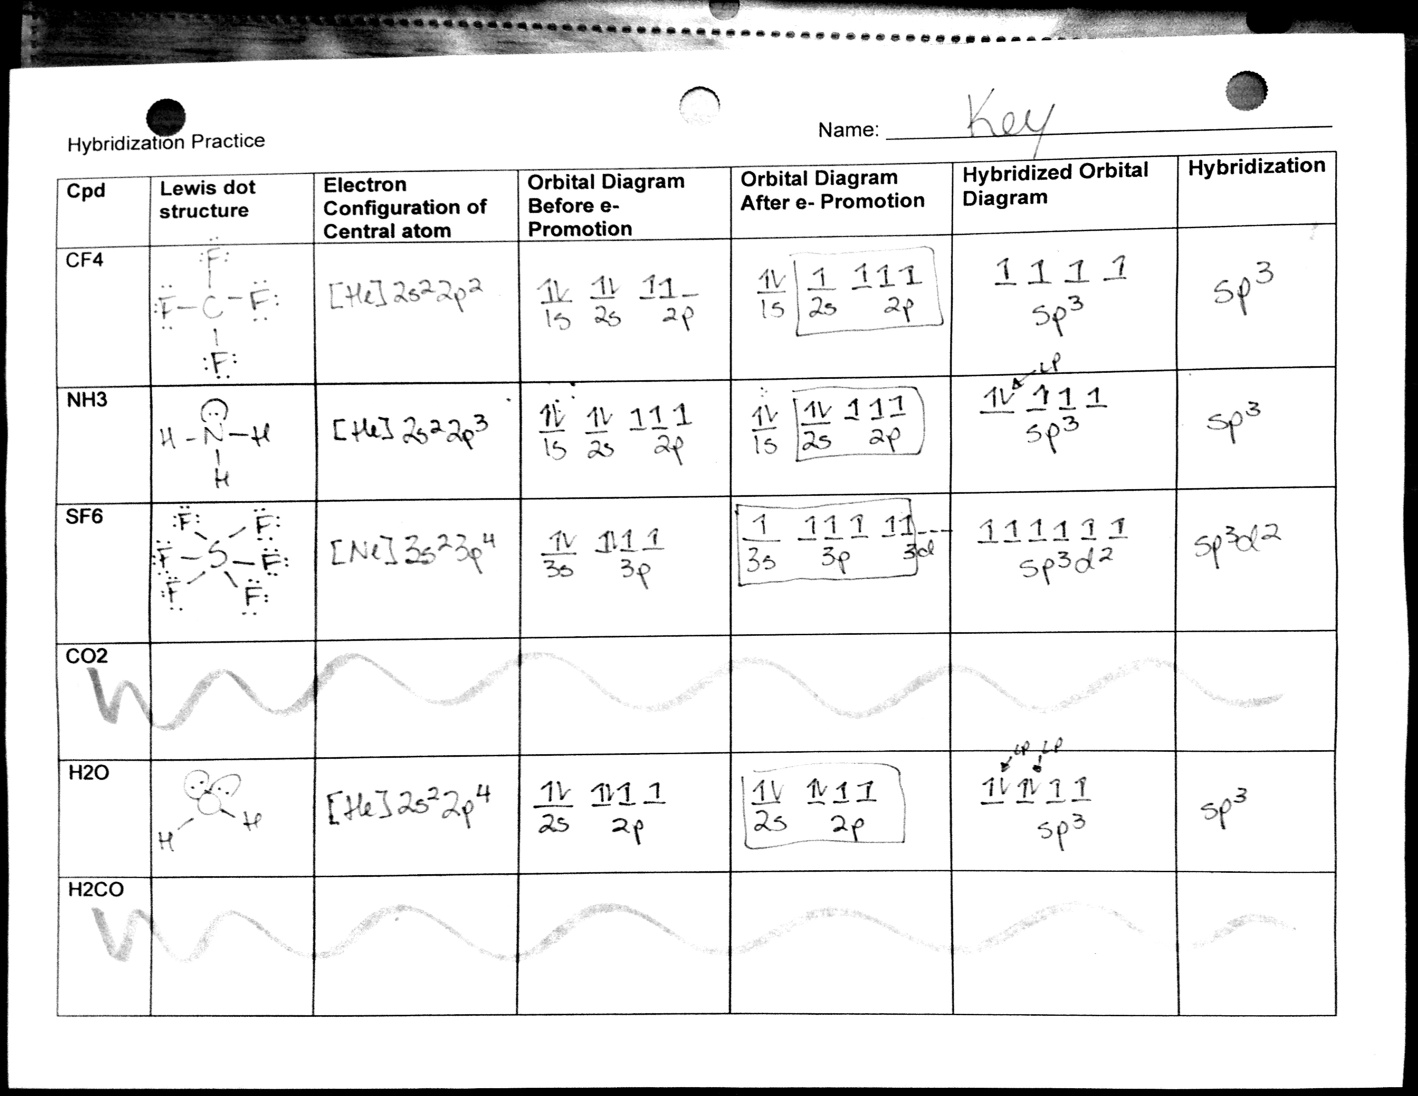 Hybridization Practice
Name: Key
Cpd
Lewis dot
structure
Electron
Configuration of
Central atom
Orbital Diagram
Before e-
Promotion
Orbital Diagram
After e- Promotion
Hybridized Orbital
Diagram
Hybridization
CF4
:F:
:F - C - F:
:F:
[He] 2s² 2p²
1s 2s 2p
1s 2s 2p
sp³
sp³
NH3
H - N - H
H
[He] 2s² 2p³
1s 2s 2p
1s 2s 2p
LP
sp³
sp³
SF6
:F: F:
:F S F:
:F F:
[Ne] 3s² 3p⁴
3s 3p
3s 3p 3d
sp³d²
sp³d²
CO2
H2O
O
H H
[He] 2s² 2p⁴
2s 2p
2s 2p
LP LP
sp³
sp³
H2CO